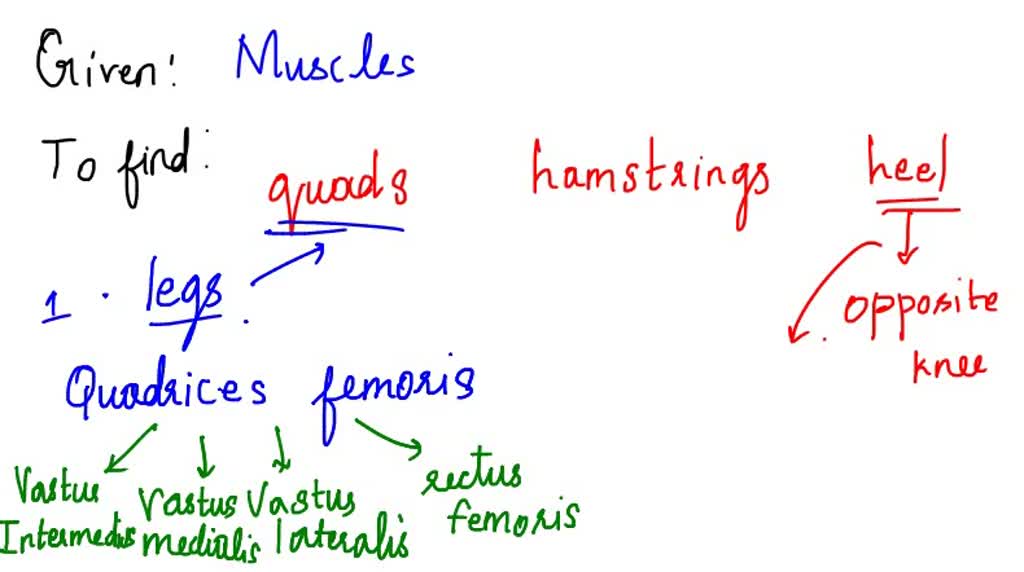 Given: Muscles
To find:
quads hamstrings heel
1. legs.
opposite
knee
Quadrices femoris
Vastus
Intermedis
Vastus
medialis
Vastus
lateralis
rectus
femoris